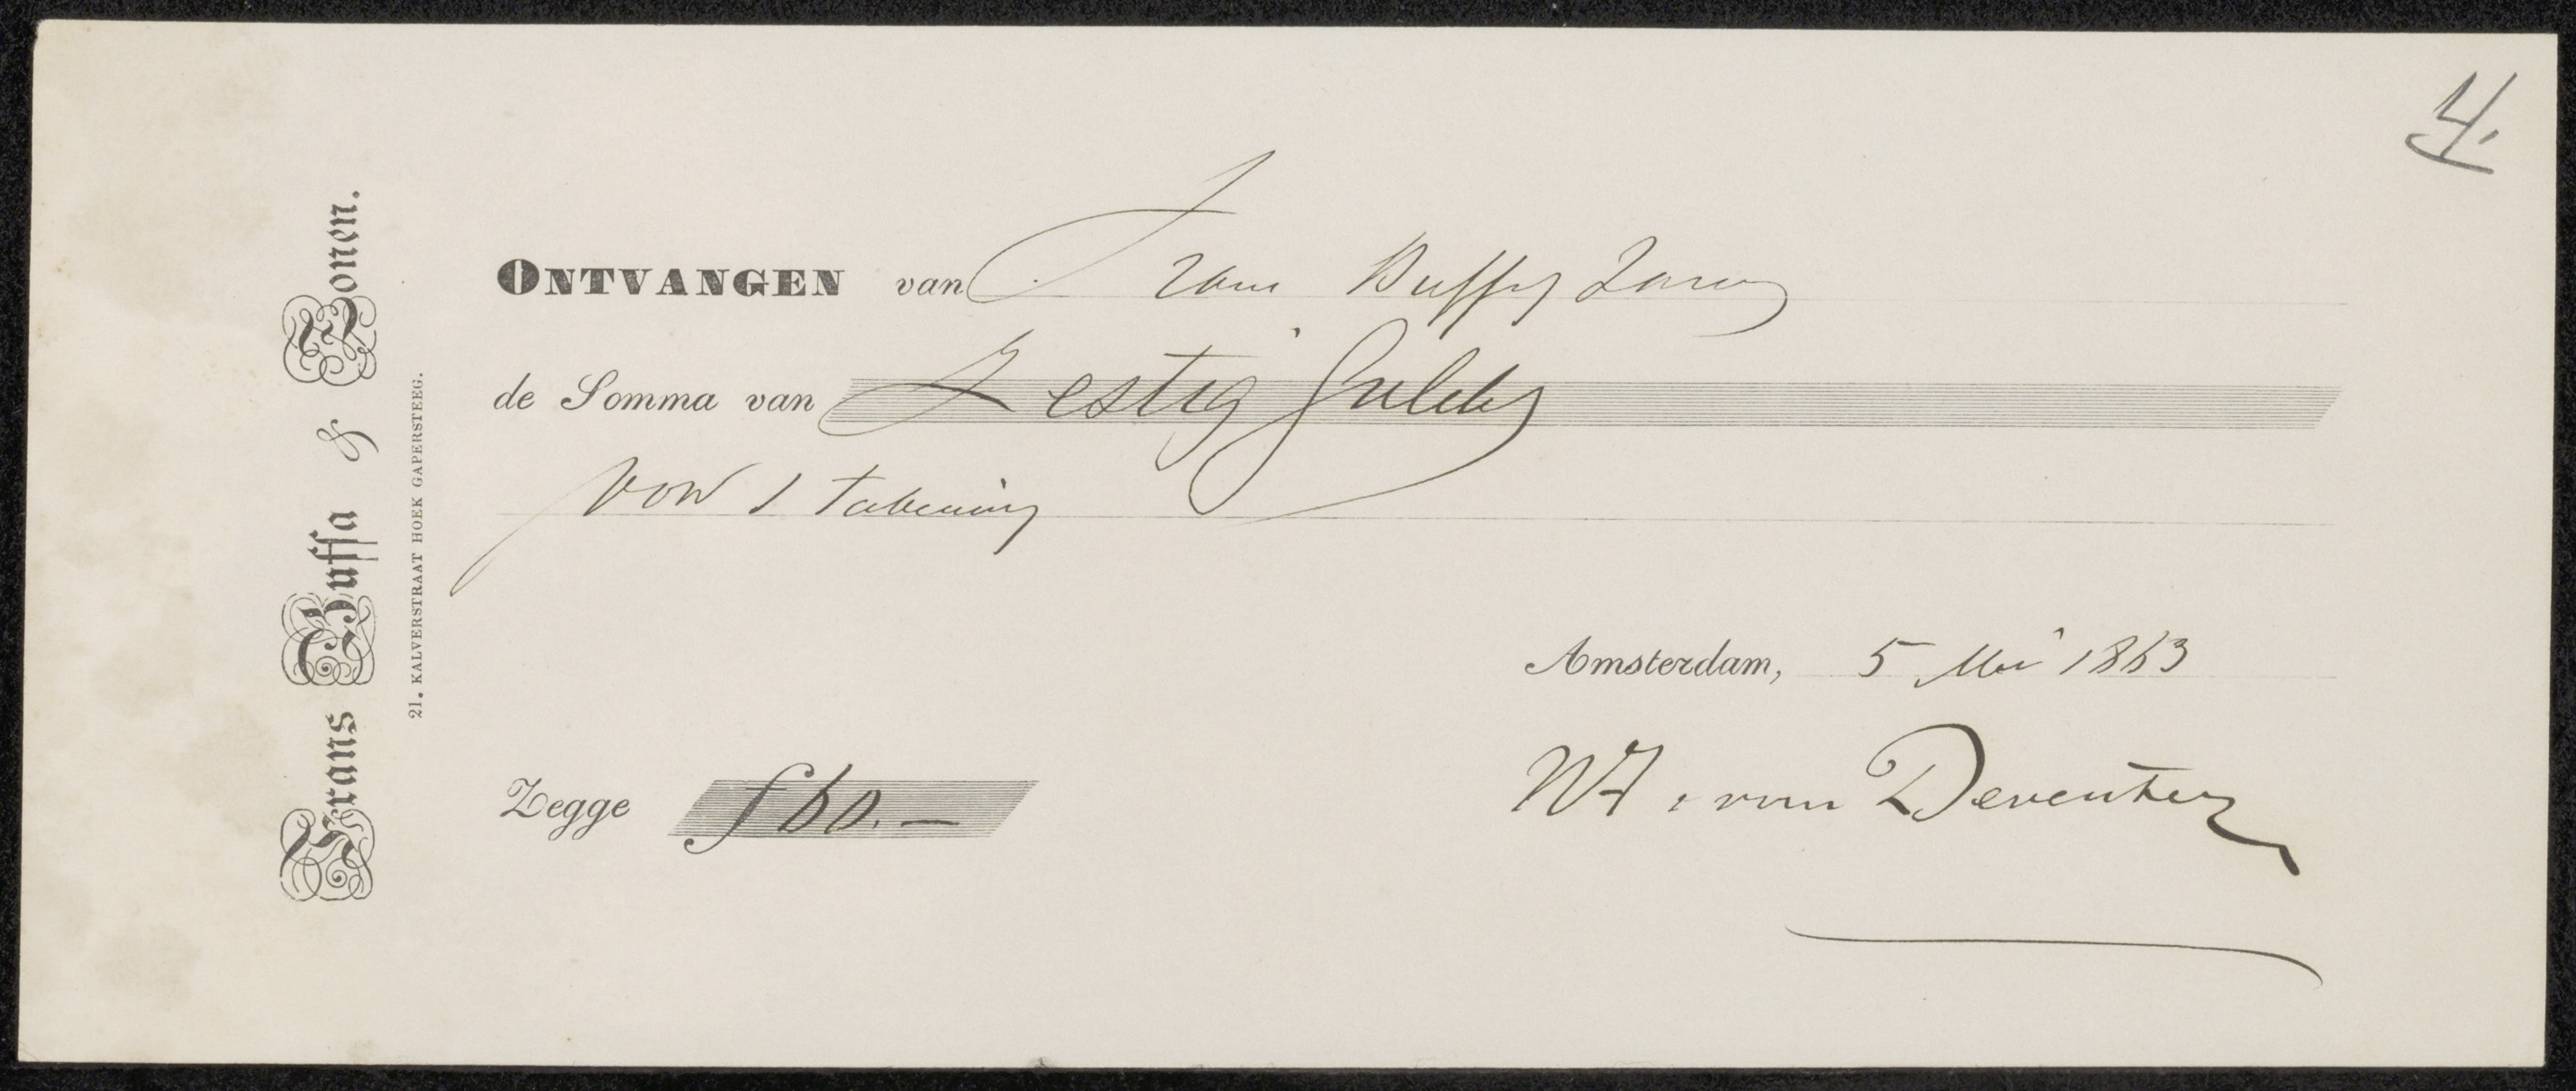 4.
Frans Buffa & Zonen.
21. KALVERSTRAAT HOEK GAPERSTEEG.
ONTVANGEN van Frans Buffa Zonen
de Somma van Zestig Gulden
voor 1 tekening
Amsterdam, 5 Mei 1863
Zegge f 60.—
WA. van Deventer